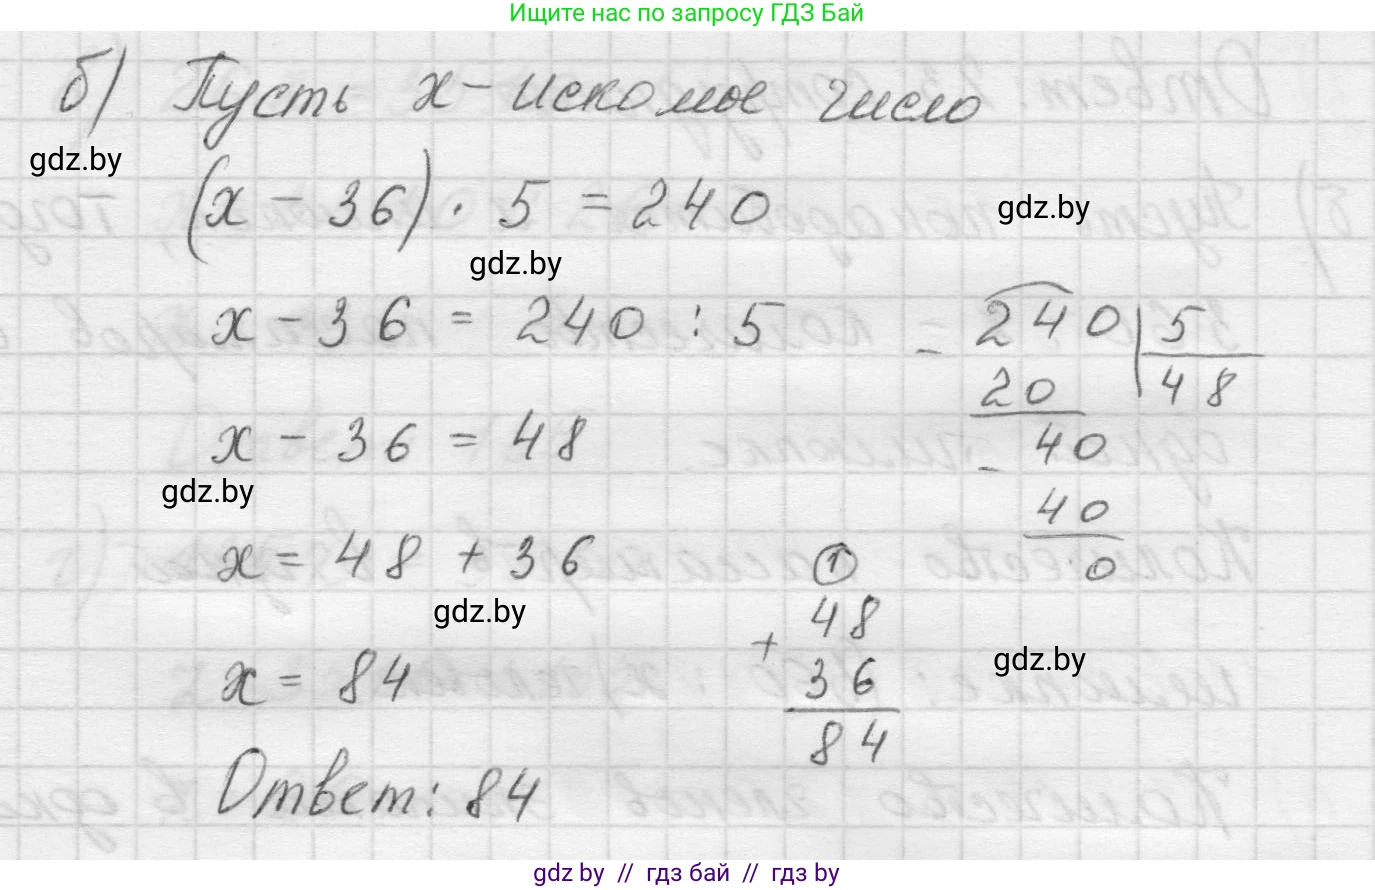 Ищите нас по запросу ГДЗ Бай
б) Пусть x - искомое число
gdz.by
(x - 36) · 5 = 240
gdz.by
gdz.by
x - 36 = 240 : 5
- 240 5
20 48
x - 36 = 48
- 40
gdz.by
40
0
x = 48 + 36
1
gdz.by
+ 48
36
gdz.by
x = 84
84
Ответ: 84
gdz.by // гдз бай // гдз by